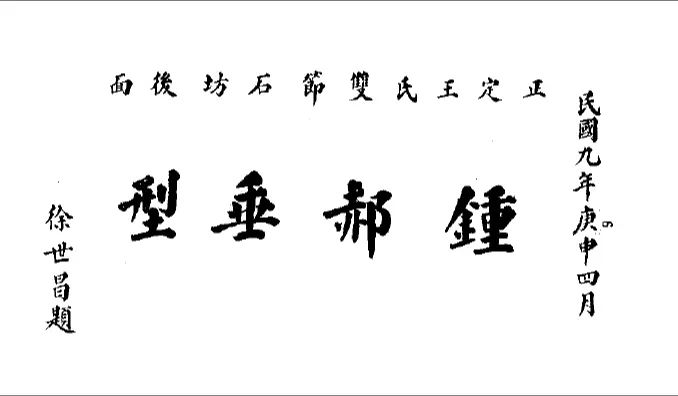 正定王氏雙節石坊後面
民國九年庚申四月
鍾郝垂型
徐世昌題